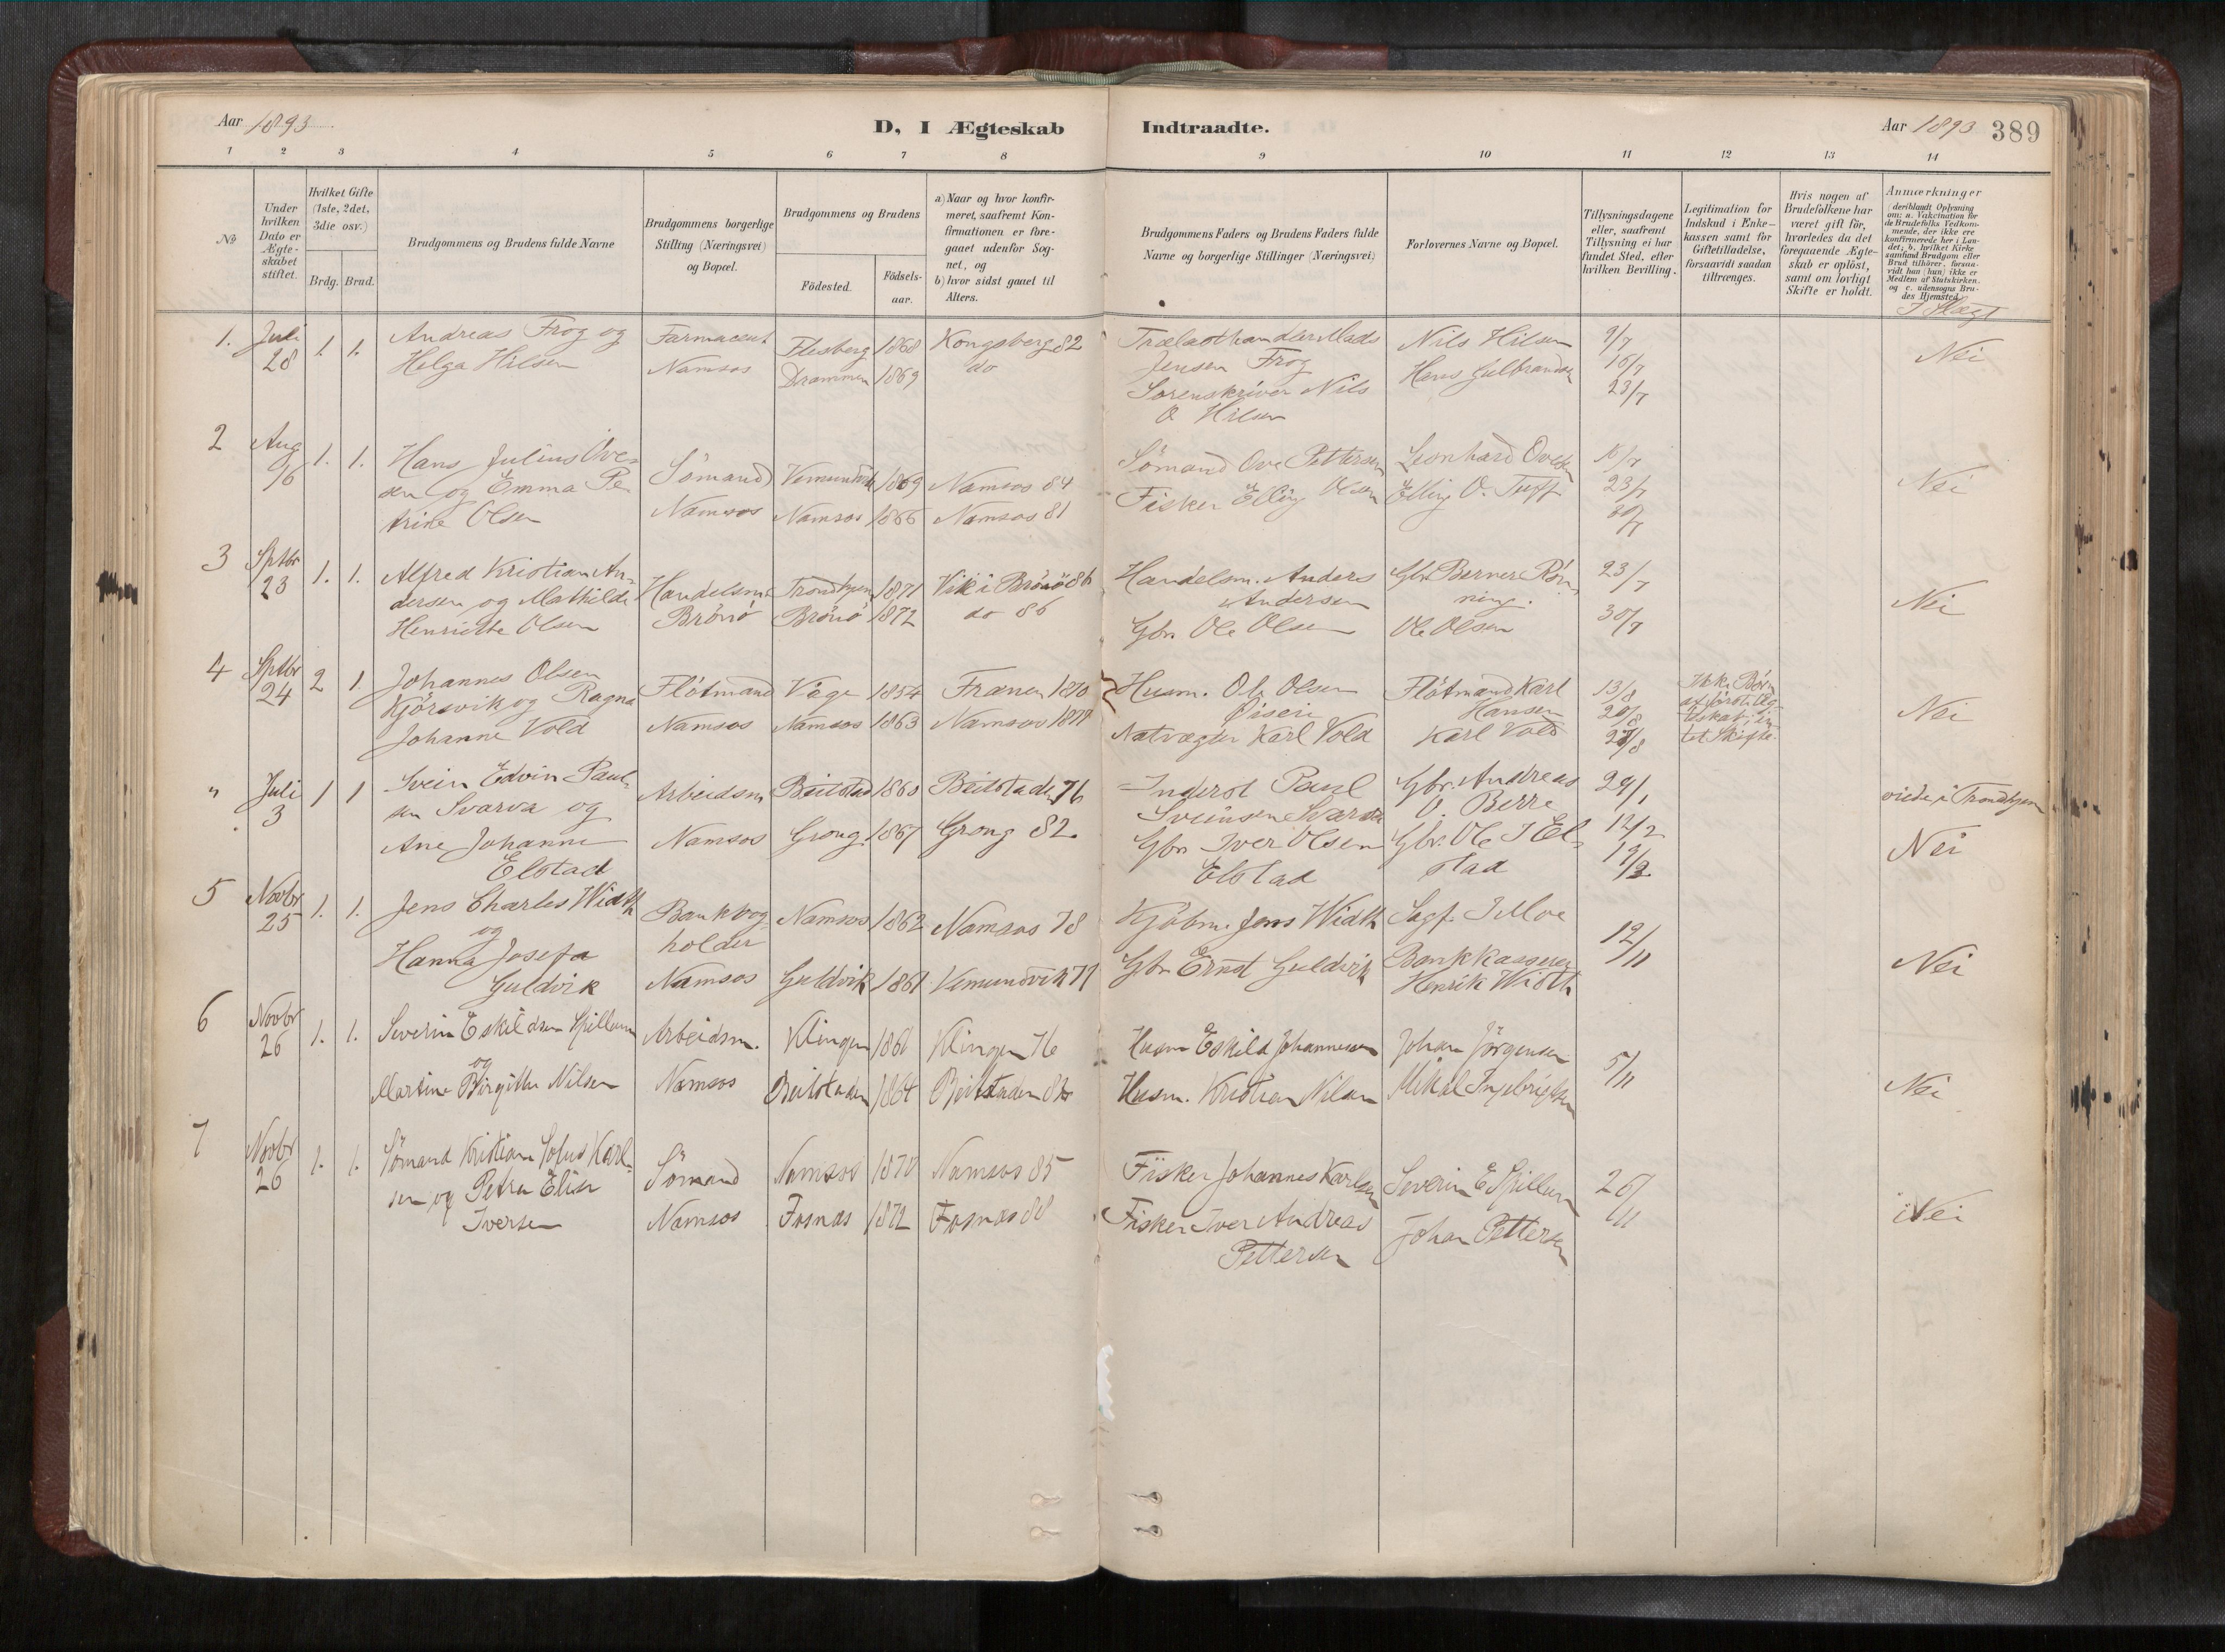 Aar 1893
D, I Ægteskab Indtraadte.
Aar 1893 389
1 2 3 4 5 6 7 8 9 10 11 12 13 14
№
Under hvilken Dato er Ægteskabet stiftet.
Hvilket Gifte (1ste, 2det, 3die osv.)
Brdg. Brud.
Brudgommens og Brudens fulde Navne
Brudgommens borgerlige Stilling (Næringsvei) og Bopæl.
Brudgommens og Brudens
Födested.
Födselsaar.
a) Naar og hvor konfirmeret, saafremt Konfirmationen er foregaaet udenfor Sognet, og
b) hvor sidst gaaet til Alters.
Brudgommens Faders og Brudens Faders fulde Navne og borgerlige Stillinger (Næringsvei)
Forlovernes Navne og Bopæl.
Tillysningsdagene eller, saafremt Tillysning ei har fundet Sted, efter hvilken Bevilling.
Legitimation for Indskud i Enkekassen samt for Giftetilladelse, forsaavidt saadan tiltrænges.
Hvis nogen af Brudefolkene har været gift før, hvorledes da det foregaaende Ægteskab er oplöst, samt om lovligt Skifte er holdt.
Anmærkninger
(deriblandt Oplysning om: a. Vakcination for de Brudefolks Vedkommende, der ikke ere konfirmerede her i Landet; b. hvilket Kirkesamfund Brudgom eller Brud tilhører, forsaavidt han (hun) ikke er Medlem af Statskirken. og c. udensogns Brudes Hjemsted.
I Slægt
1. Juli 28 1. 1. Andreas Frog og Farmaceut Flesberg 1868 Kongsberg 82 Trælasthandler Mads Nils Hilsen 9/7 Nei
Helga Hilsen Namsos Drammen 1869 do Jensen Frog Hans Gulbrandsen 16/7
Sorenskriver Nils 23/7
O Hilsen
2 Aug 16 1. 1. Hans Julius Ove- Sömand Vemundvik 1869 Namsos 84 Sömand Ove Pettersen Leonhard Ovesen 16/7 Nei
sen og Emma Pe Namsos Namsos 1866 Namsos 81 Fisker Elling Olsen Elling O. Tuft 23/7
trine Olsen 30/7
3 Sptbr 23 1. 1. Alfred Kristian An- Handelsm. Trondhjem 1871 Vik i Brönö 86 Handelsm. Anders Gbr. Berner Røn 23/7 Nei
dersen og Mathilde Brönö Brönö 1872 do 86 Andersen ning.
Henriette Olsen Gbr. Ole Olsen Ole Olsen 30/7
4 Sptbr 24 2 1. Johannes Olsen Flötmand Våge 1854 Frænen 1870 Husm. Ole Olsen Flötmand Karl 13/8 Ikke Børn Nei
Kjörsvik og Ragna Øiseir Hansen 20/8 af første Æg-
Johanne Vold Namsos Namsos 1863 Namsos 1878 Natvægter Karl Vold Karl Vold 27/8 teskab; in
tet Skifte.
" Juli 3 1 1 Svein Edvin Paul- Arbeidsm. Beitstad 1860 Beitstaden 76 Inderst Paul Gbr. Andreas 29/1 viede i Trondhjem
sen Svarva og Sveinsen Svarva O. Berre 12/2
Ane Johanne Namsos Grong 1867 Grong 82. Gbr. Iver Olsen Gbr. Ole I El- 19/2 Nei
Elstad Elstad stad
5 Novbr 25 1. 1. Jens Charles Width Bankbog- Namsos 1862 Namsos 78 Kjöbm. Jens Width Sagf. I Moe 12/11
og holder
Hanna Josefa Namsos Guldvik 1861 Vemundvik 77 Gbr. Ernst Guldvik Bankkasserer Nei
Guldvik Henrik Width
6 Novbr 26 1. 1. Severin Eskildsen Spillum Arbeidsm. Klingen 1861 Klingen 76 Husm Eskild Johannesen Johan Jörgensen 5/11 Nei
og
Martine Birgitte Nilsen Namsos Beitstaden 1864 Beitstaden 83 Husm. Kristian Nilsen Mikal Ingebrigtsen
7 Novbr 26 1. 1. Sömand Kristian Karl- Sömand Namsos 1870 Namsos 85 Fisker Johannes Karlsen Severin E Spillum 26/11 Nei
sen og Petra Elise Namsos Fosnæs 1872 Fosnæs 88 Fisker Iver Andreas Johan Pettersen
Iversen Pettersen